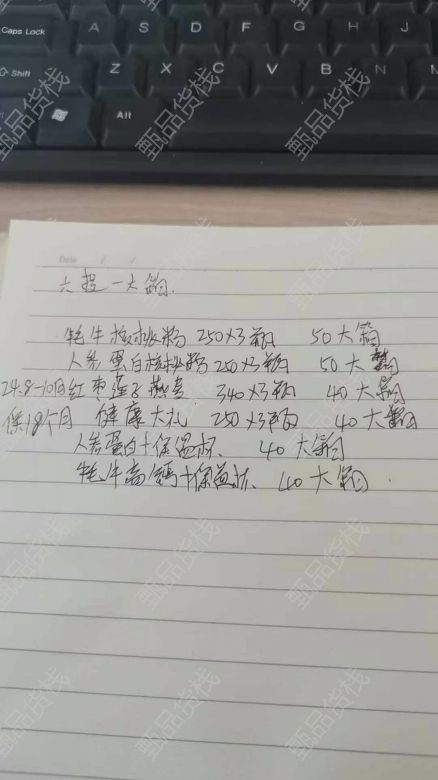 Caps Lock A S D F G H J
Shift Z X C V B N M
Alt
甄品货栈
Date / /
六提一大箱.
牦牛核桃粉 250×3瓶 50大箱
人参蛋白核桃粉 250×3瓶 50大箱
24.8-10月 红枣莲子燕麦 340×3瓶 40大箱
保18个月 健康大礼 250×3瓶 40大箱
人参蛋白+保温杯. 40大箱
牦牛高钙+保温杯. 40大箱